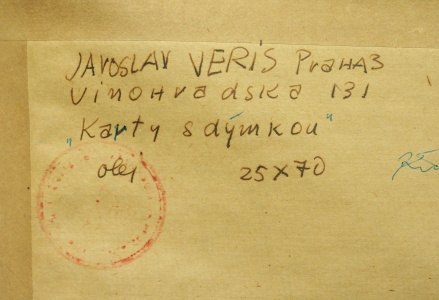 JAROSLAV VERIS PRAHA3
Vinohradska 131
"Karty s dýmkou"
olej 25X70